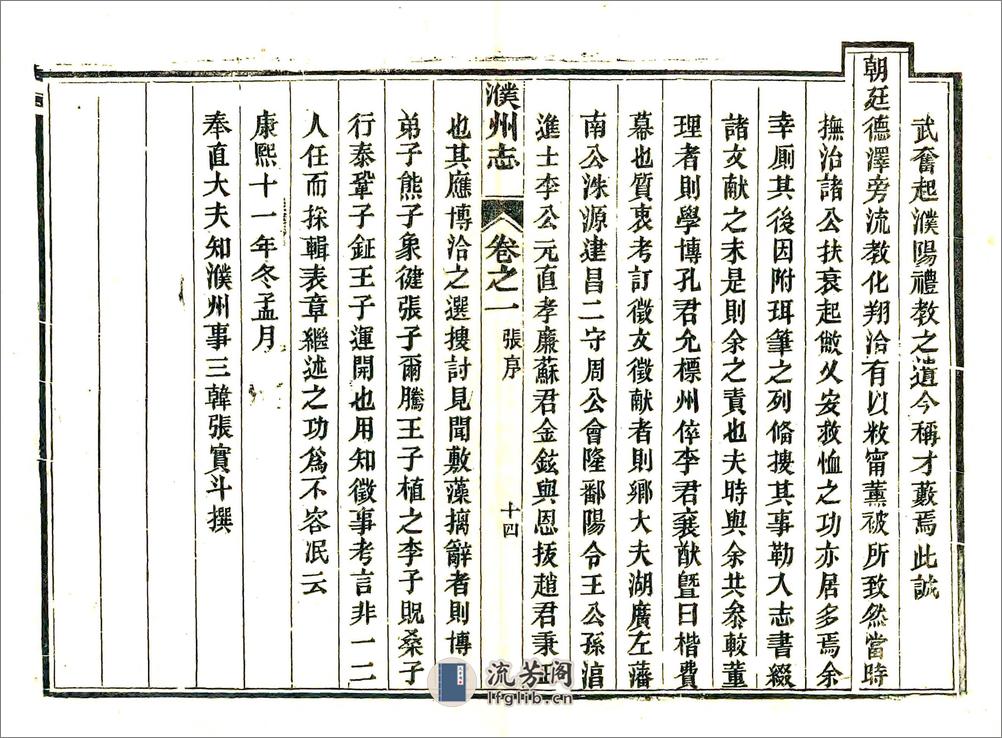 武奮起濮陽禮教之遺今稱才藪焉此誠
朝廷德澤旁流教化翔洽有以敉甯薰被所致然當時
撫治諸公扶衰起敝乂安救恤之功亦居多焉余
幸廁其後因附珥筆之列脩搜其事勒入志書綴
諸文献之末是則余之責也夫時與余共叅較董
理者則學博孔君允標州倅李君襄猷曁日楷費
幕也質衷考訂徵文徵献者則鄉大夫湖廣左藩
南公洙源建昌二守周公會隆鄱陽令王公孫㳷
進士李公元直孝廉蘇君金鉉與恩拔趙君秉
濮州志
卷之一
張序
十四
也其應博洽之選搜討見聞敷藻摛辭者則博
弟子熊子象健張子爾騰王子植之李子貺桑子
行泰鞏子鉦王子運開也用知徵事考言非一二
人任而採輯表章繼述之功爲不容泯云
康熙十一年冬孟月
奉直大夫知濮州事三韓張實斗撰
流芳阁
lfglib.cn